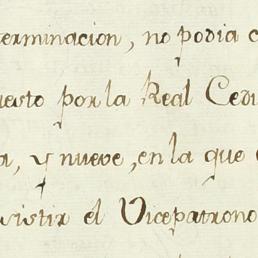 terminacion, no podia c
uesto por la Real Cedu
a, y nueve, en la que
sistir el Vicepatrono